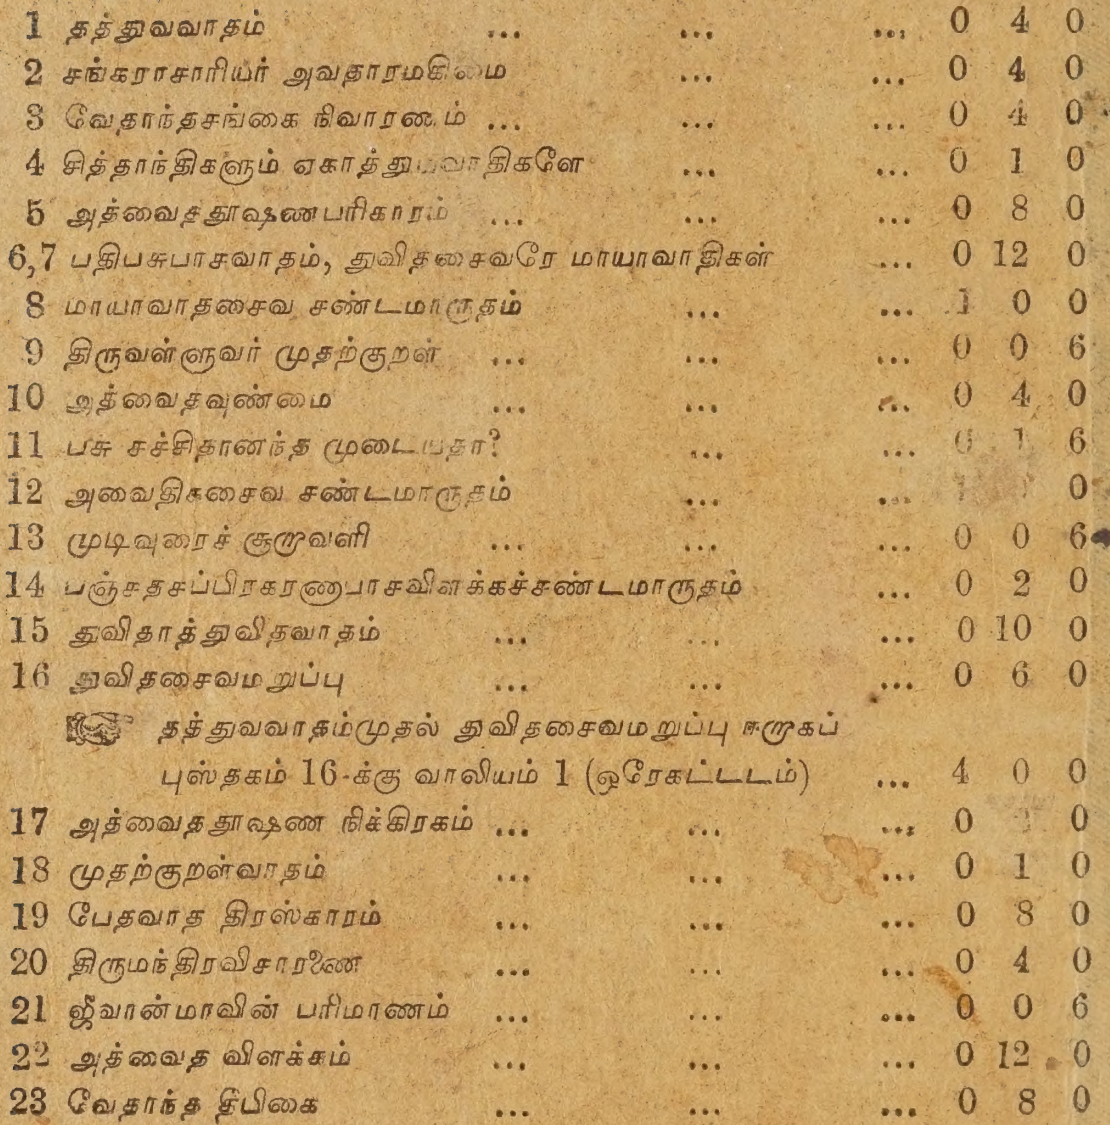 1 தத்துவவாதம் ... ... ... 0 4 0
2 சங்கராசாரியர் அவதாரமகிமை ... ... 0 4 0
3 வேதாந்தசங்கை நிவாரணம் ... ... ... 0 4 0
4 சித்தாந்திகளும் ஏகாத்துமவாதிகளே ... ... 0 1 0
5 அத்வைததூஷணபரிகாரம் ... ... ... 0 8 0
6,7 பதிபசுபாசவாதம், துவிதசைவரே மாயாவாதிகள் ... 0 12 0
8 மாயாவாதசைவ சண்டமாருதம் ... ... 1 0 0
9 திருவள்ளுவர் முதற்குறள் ... ... ... 0 0 6
10 அத்வைதவுண்மை ... ... ... 0 4 0
11 பசு சச்சிதானந்த முடையதா? ... ... 0 1 6
12 அவைதிகசைவ சண்டமாருதம் ... ... 0
13 முடிவுரைச் சூறாவளி ... ... ... 0 0 6
14 பஞ்சதசப்பிரகரணாபாசவிளக்கச்சண்டமாருதம் ... 0 2 0
15 துவிதாத்துவிதவாதம் ... ... ... 0 10 0
16 துவிதசைவமறுப்பு ... ... ... 0 6 0
☞ தத்துவவாதம்முதல் துவிதசைவமறுப்பு ஈறாகப்
புஸ்தகம் 16-க்கு வாலியம் 1 (ஒரேகட்டடம்) ... 4 0 0
17 அத்வைததூஷண நிக்கிரகம் ... ... ... 0 0
18 முதற்குறள்வாதம் ... ... ... 0 1 0
19 பேதவாத திரஸ்காரம் ... ... ... 0 8 0
20 திருமந்திரவிசாரணை ... ... ... 0 4 0
21 ஜீவான்மாவின் பரிமாணம் ... ... ... 0 0 6
22 அத்வைத விளக்கம் ... ... ... 0 12 0
23 வேதாந்த தீபிகை ... ... ... 0 8 0